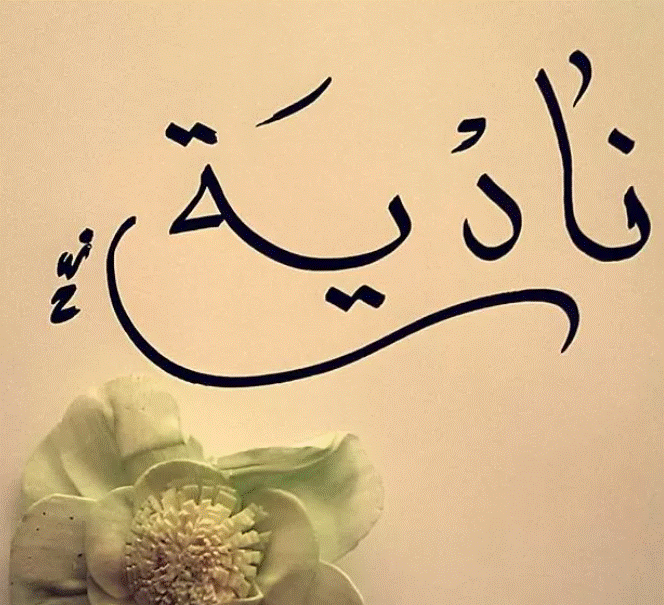 نادية